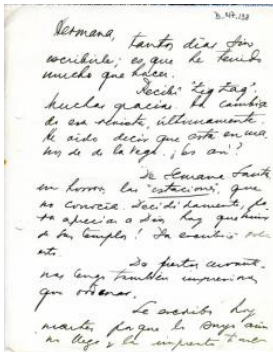 B. 47,198
Hermana, tantos días sin
escribirle; es que he tenido
mucho que hacer.
Recibí "Zig Zag".
Muchas gracias. Ha cambiado
de esa revista, últimamente.
He oído decir que está en ma
nos de de la Vega. ¿es así?
De Semana Santa
en horror, las "estaciones", que
no conocía. Decididamente, pa
ra apreciar a Dios hay que huir
de sus templos! Ya escribiré sobre
esto.
De fiestas
nas tengo también impresiones
que ordenar.
Le escribo hoy
martes porque la suya aún
no llega y la